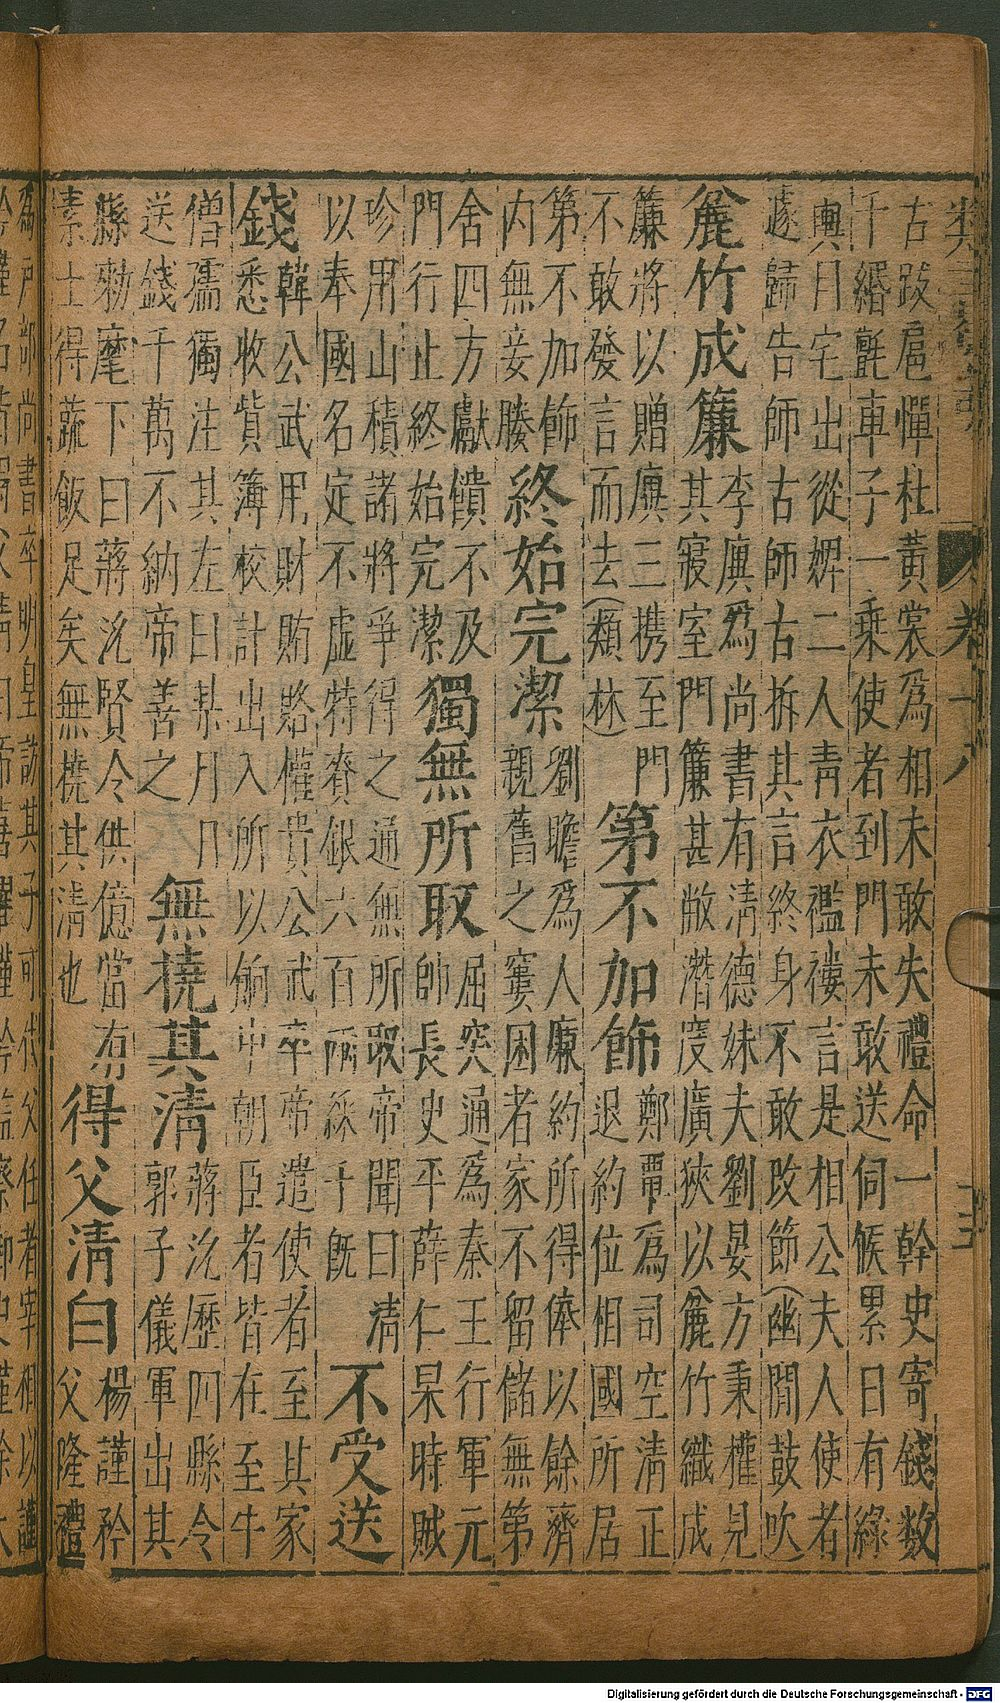 卷十八
古跋扈憚杜黃裳爲相未敢失禮命一幹史寄錢数
千緡氈車子一乘使者到門未敢送伺候累日有綠
輿自宅出從婢二人青衣襤褸言是相公夫人使者
遽歸告師古師古拆其言終身不敢改節(幽閒鼓吹)
麄竹成簾
李廙爲尚書有清德妹夫劉晏方秉權見
其寢室門簾甚敝潛度廣狹以麄竹織成
簾將以贈廙三携至門
不敢發言而去(類林)
第不加飾
鄭覃爲司空清正
退約位相國所居
第不加飾
内無妾媵
終始完潔
劉瞻爲人廉約所得俸以餘濟
親舊之窶困者家不留儲無第
舍四方獻饋不及
門行止終始完潔
獨無所取
屈突通爲秦王行軍元
帥長史平薛仁杲時賊
珍用山積諸將爭得之通無所取帝聞曰清
以奉國名定不虛特賚銀六百兩綵千既
不受送
錢
韓公武用財賄賂權貴公武卒帝遣使者至其家
悉收貲簿校計出入所以餉中朝臣者皆在至牛
僧孺獨注其左曰某月日
送錢千萬不納帝善之
無撓其清
蔣沇歷四縣令
郭子儀軍出其
縣勑麾下曰蔣沇賢令供億當有
素士得蔬飯足矣無撓其清也
得父清白
楊謹矜
父隆禮
爲戶部尚書卒明皇訪其子可代父任者宰相以謹
Digitalisierung gefördert durch die Deutsche Forschungsgemeinschaft - DFG